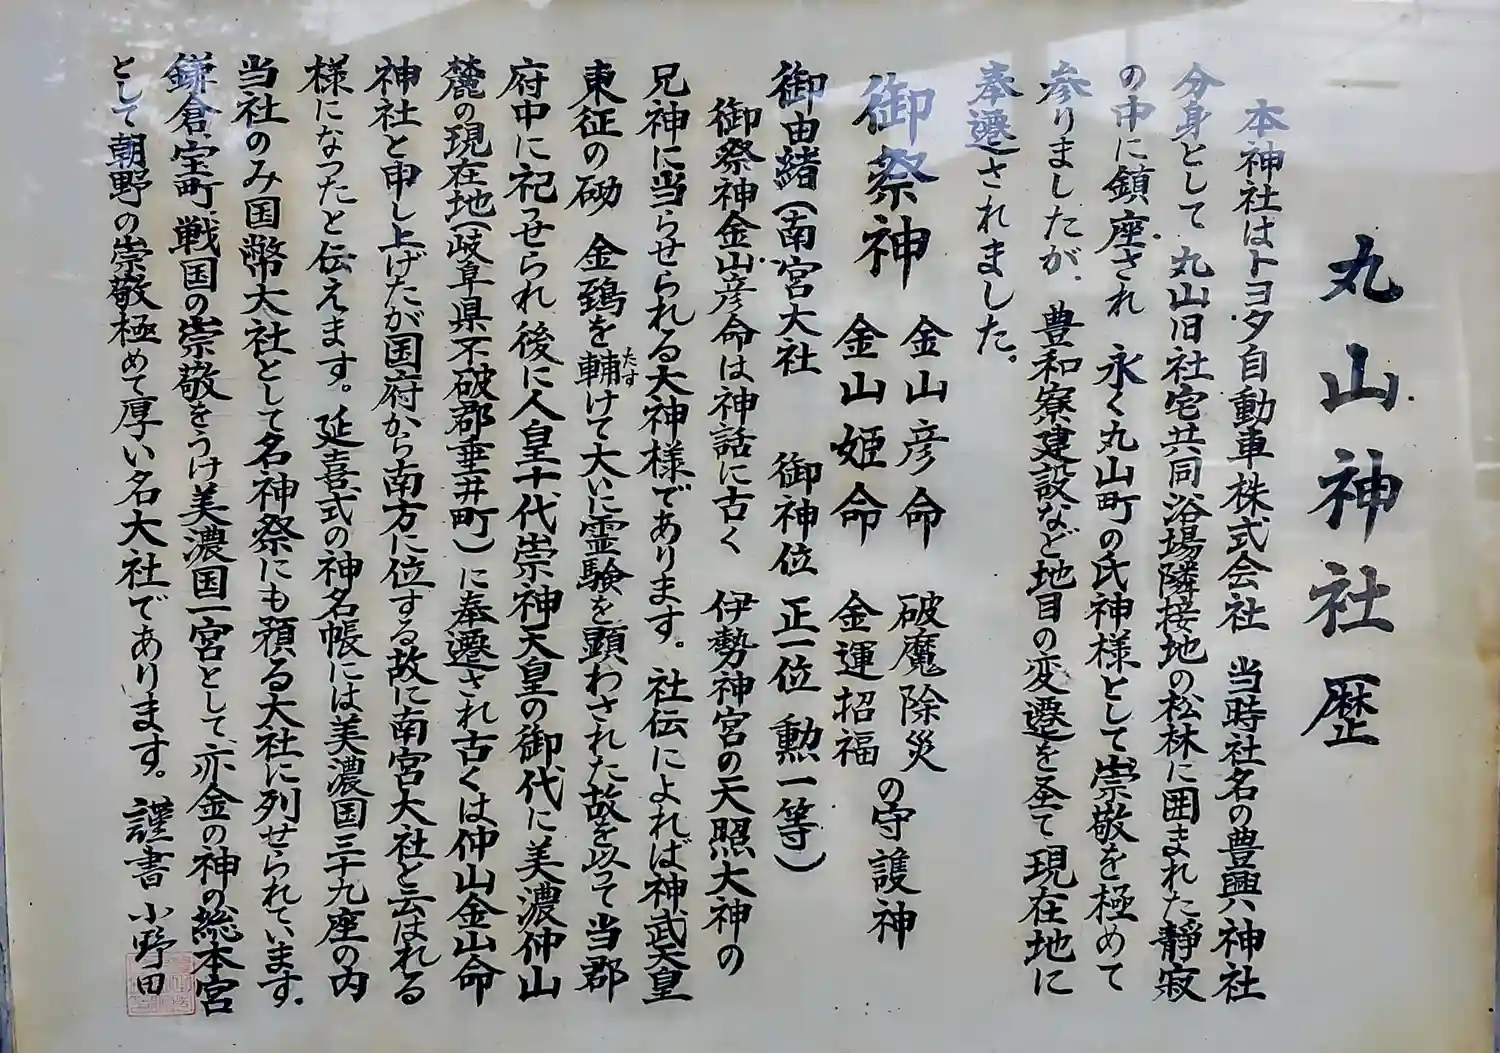 丸山神社歴
本神社はトヨタ自動車株式会社 当時社名の豊興神社
分身として 丸山旧社宅共同浴場隣接地の松林に囲まれた静寂
の中に鎮座され 永く丸山町の氏神様として崇敬を極めて
参りましたが、豊和寮建設など地目の変遷を圣て現在地に
奉遷されました。
御祭神 金山彦命 破魔除災
金山姫命 金運招福 の守護神
御由緒(南宮大社 御神位 正一位 勲一等)
御祭神金山彦命は神話に古く 伊勢神宮の天照大神の
兄神に当らせられる大神様であります。社伝によれば神武天皇
東征の砌 金鵄を輔けて大いに霊験を顕わされた故を以って当郡
たす
府中に祀らせられ後に人皇十代崇神天皇の御代に美濃仲山
麓の現在地(岐阜県不破郡垂井町)に奉遷され古くは仲山金山命
神社と申し上げたが国府から南方に位する故に南宮大社と云はれる
様になったと伝えます。延喜式の神名帳には美濃国三十九座の内
当社のみ国幣大社として名神祭にも預る大社に列せられています.
鎌倉室町戦国の崇敬をうけ美濃国一宮として、亦金の神の総本宮
として朝野の崇敬極めて厚い名大社であります。謹書 小野田